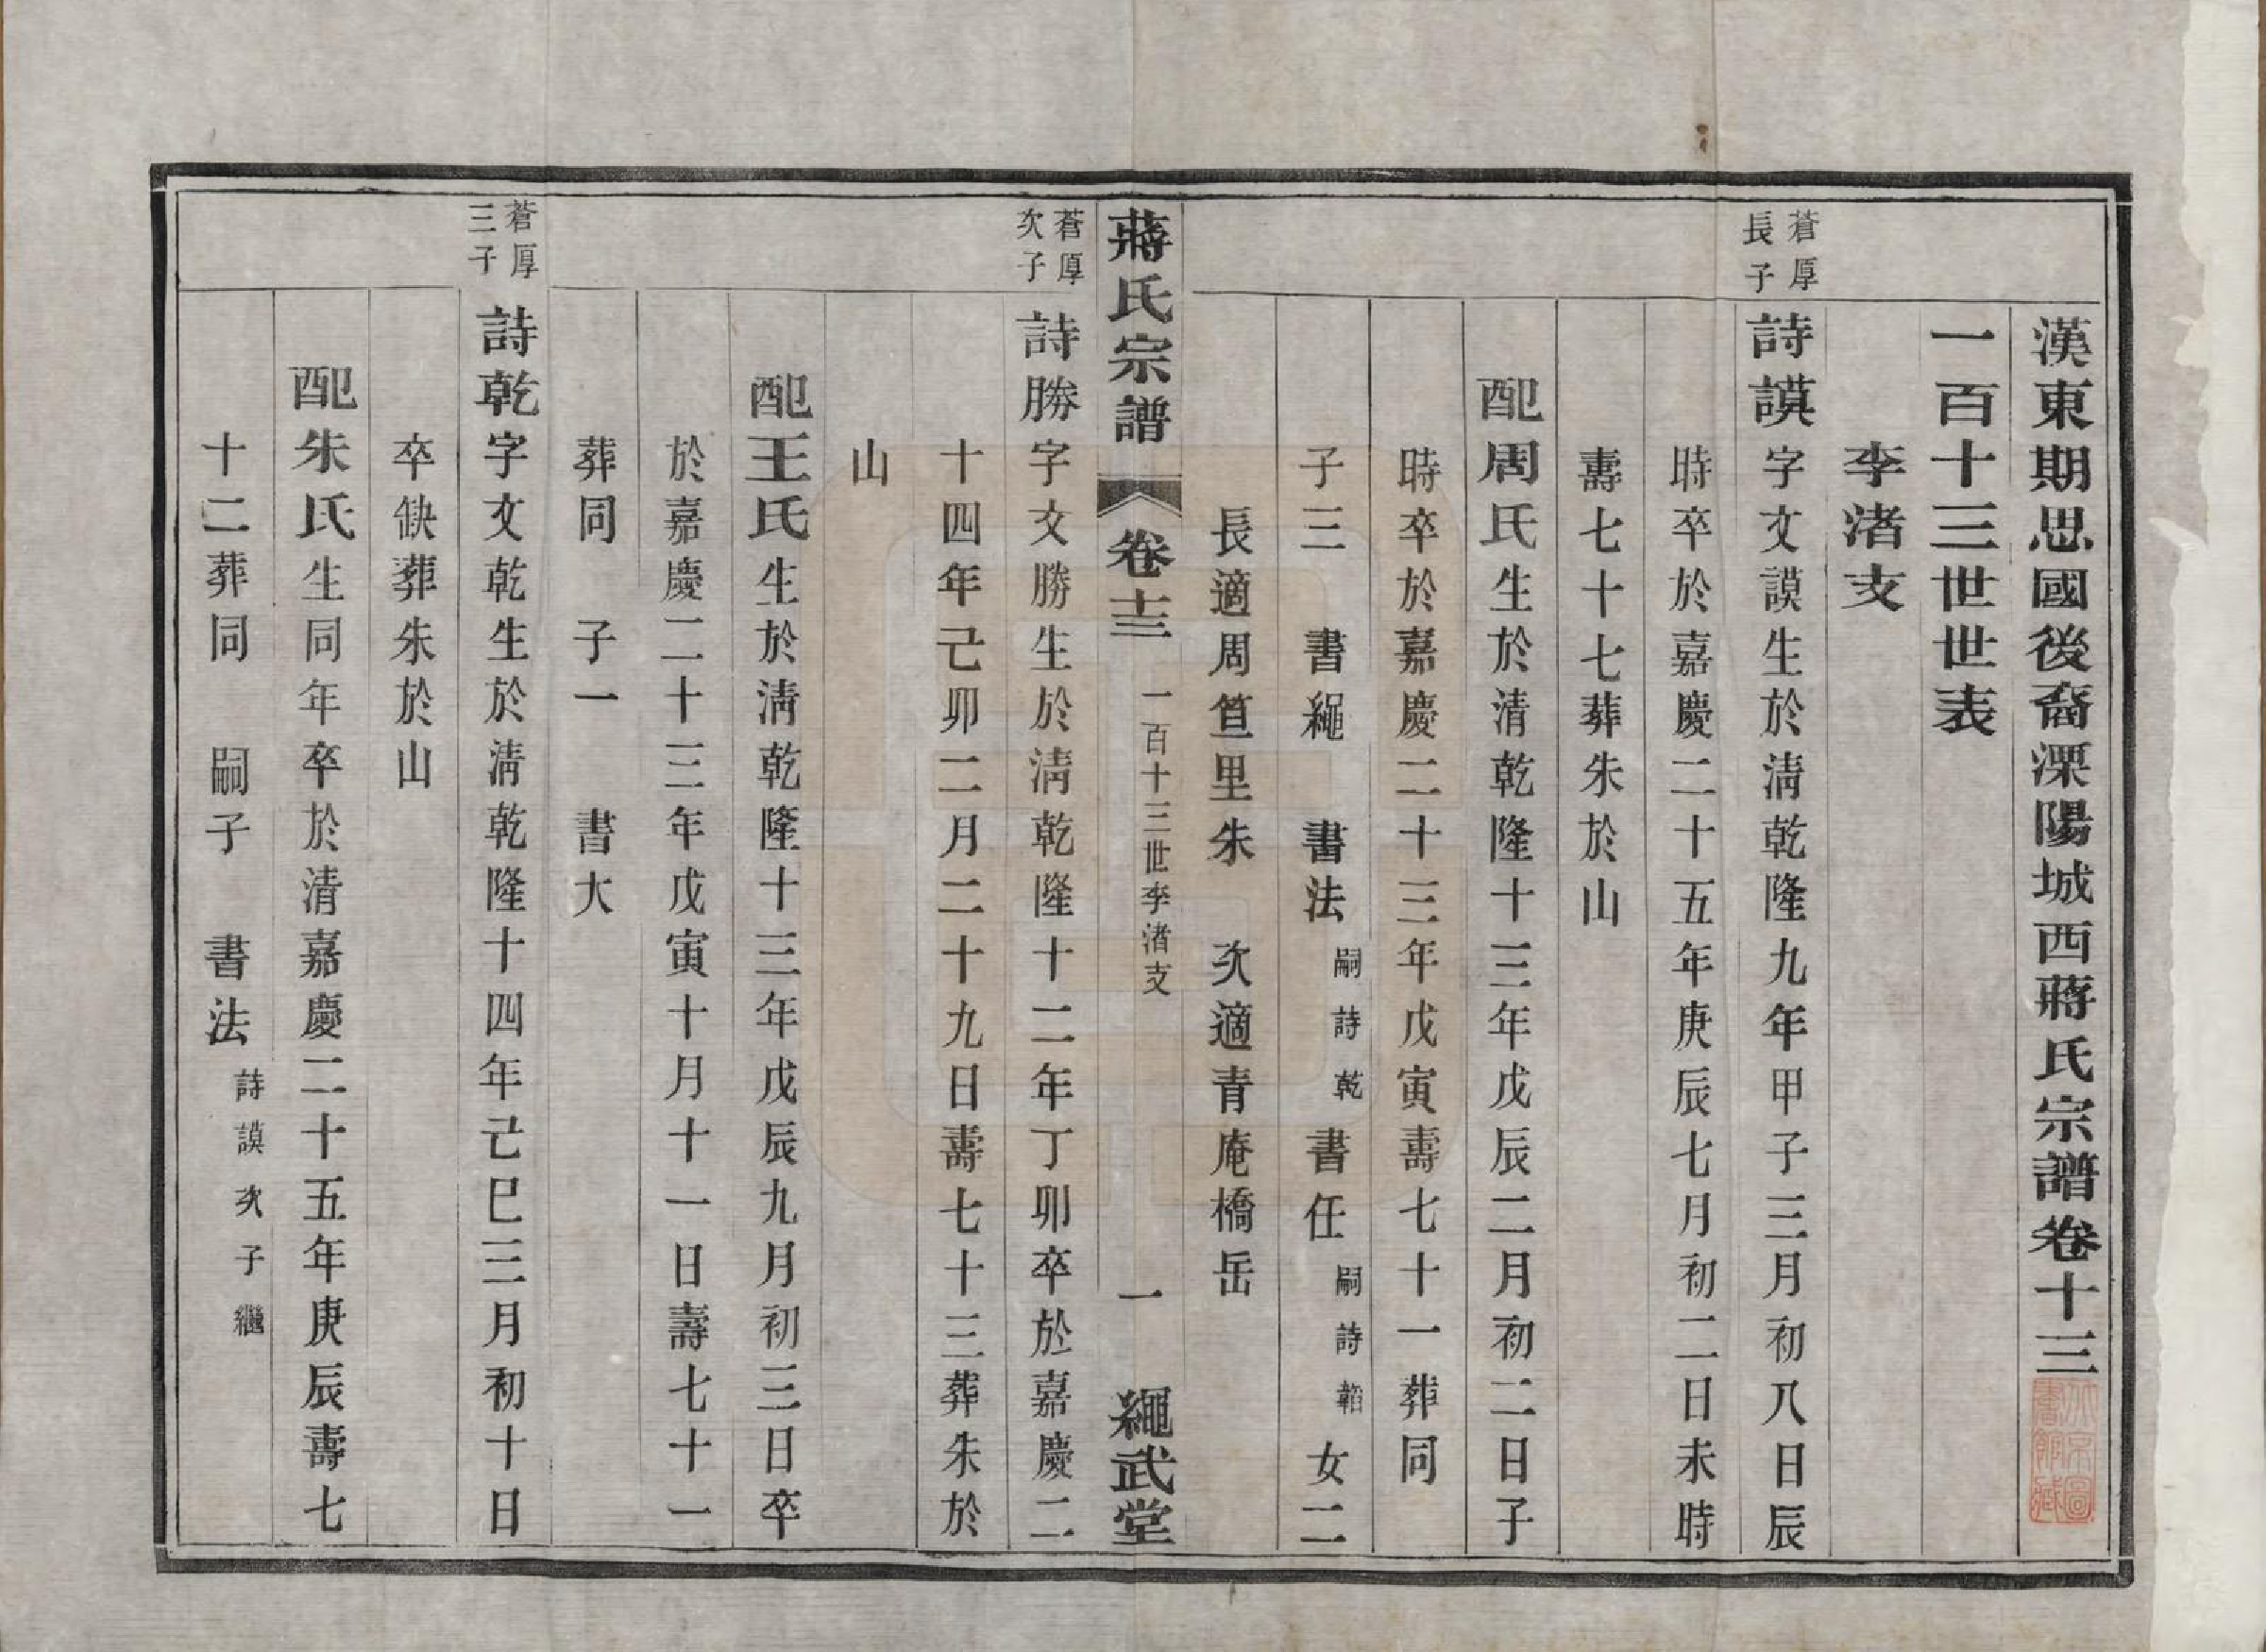 漢東期思國後裔溧陽城西蔣氏宗譜卷十三
一百十三世世表
李渚支
蒼厚
長子
詩謨字文謨生於清乾隆九年甲子三月初八日辰
時卒於嘉慶二十五年庚辰七月初二日未時
壽七十七葬朱於山
配周氏生於清乾隆十三年戊辰二月初二日子
時卒於嘉慶二十三年戊寅壽七十一葬同
子三 書繩 書法嗣詩乾 書任嗣詩韜 女二
長適周笪里朱 次適青庵橋岳
蔣氏宗譜 卷十三 一百十三世李渚支 一 繩武堂
蒼厚
次子
詩勝字文勝生於清乾隆十二年丁卯卒於嘉慶二
十四年己卯二月二十九日壽七十三葬朱於
山
配王氏生於清乾隆十三年戊辰九月初三日卒
於嘉慶二十三年戊寅十月十一日壽七十一
葬同 子一 書大
蒼厚
三子
詩乾字文乾生於清乾隆十四年己巳三月初十日
卒缺葬朱於山
配朱氏生同年卒於清嘉慶二十五年庚辰壽七
十二葬同 嗣子 書法詩謨次子繼